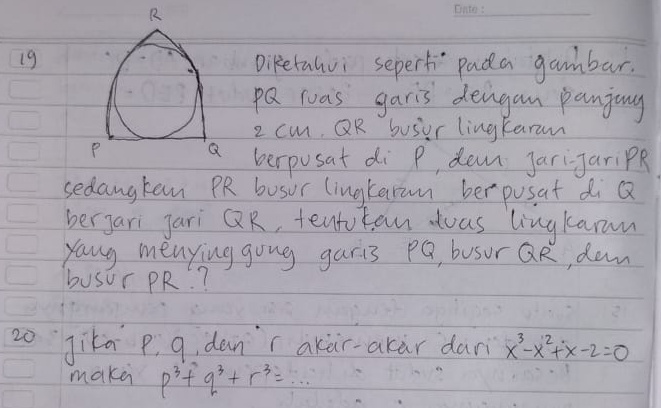 Date :
R
19
Diketahui seperti pada gambar.
PQ ruas garis dengan panjang
2 cm. QR busur lingkaran
P
Q
berpusat di P, dan jari-jari PR
sedangkan PR busur lingkaran berpusat di Q
berjari jari QR, tentukan luas lingkaran
yang menyinggung garis PQ, busur QR, dan
busur PR.?
20 Jika p, q, dan r akar-akar dari x³-x²+x-2=0
maka p³+q³+r³=...